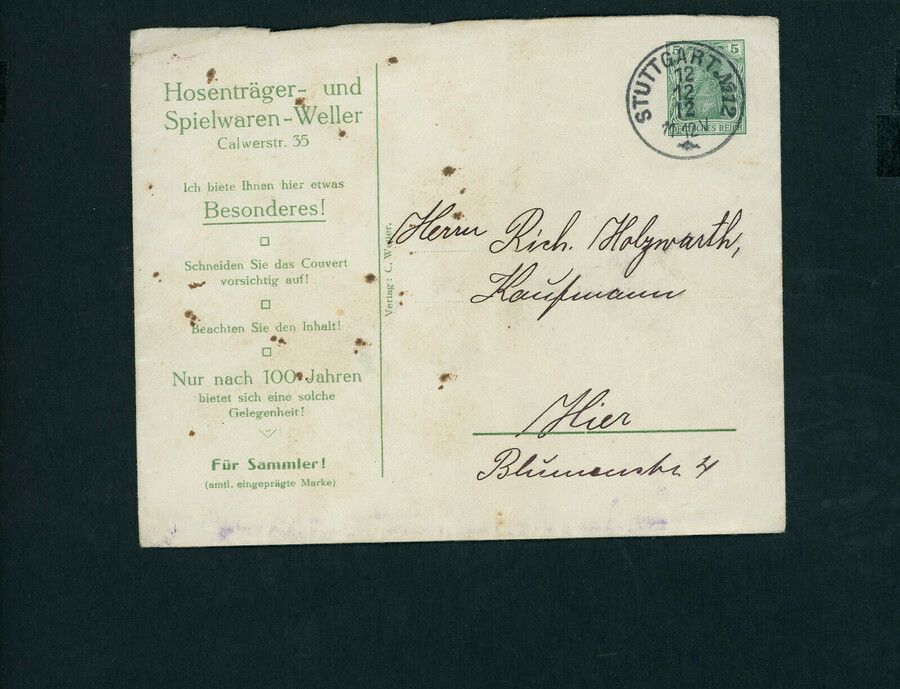 Hosenträger- und
Spielwaren-Weller
Calwerstr. 35
Ich biete Ihnen hier etwas
Besonderes!
Schneiden Sie das Couvert
vorsichtig auf!
Beachten Sie den Inhalt!
Nur nach 100 Jahren
bietet sich eine solche
Gelegenheit!
Für Sammler!
(amtl. eingeprägte Marke)
Verlag: C. Weller.
5 5
DEUTSCHES REICH
STUTTGART No 12
12
12
12
11-12 V
Herrn Rich. Holzwarth,
Kaufmann
Hier
Blumenstr. 4